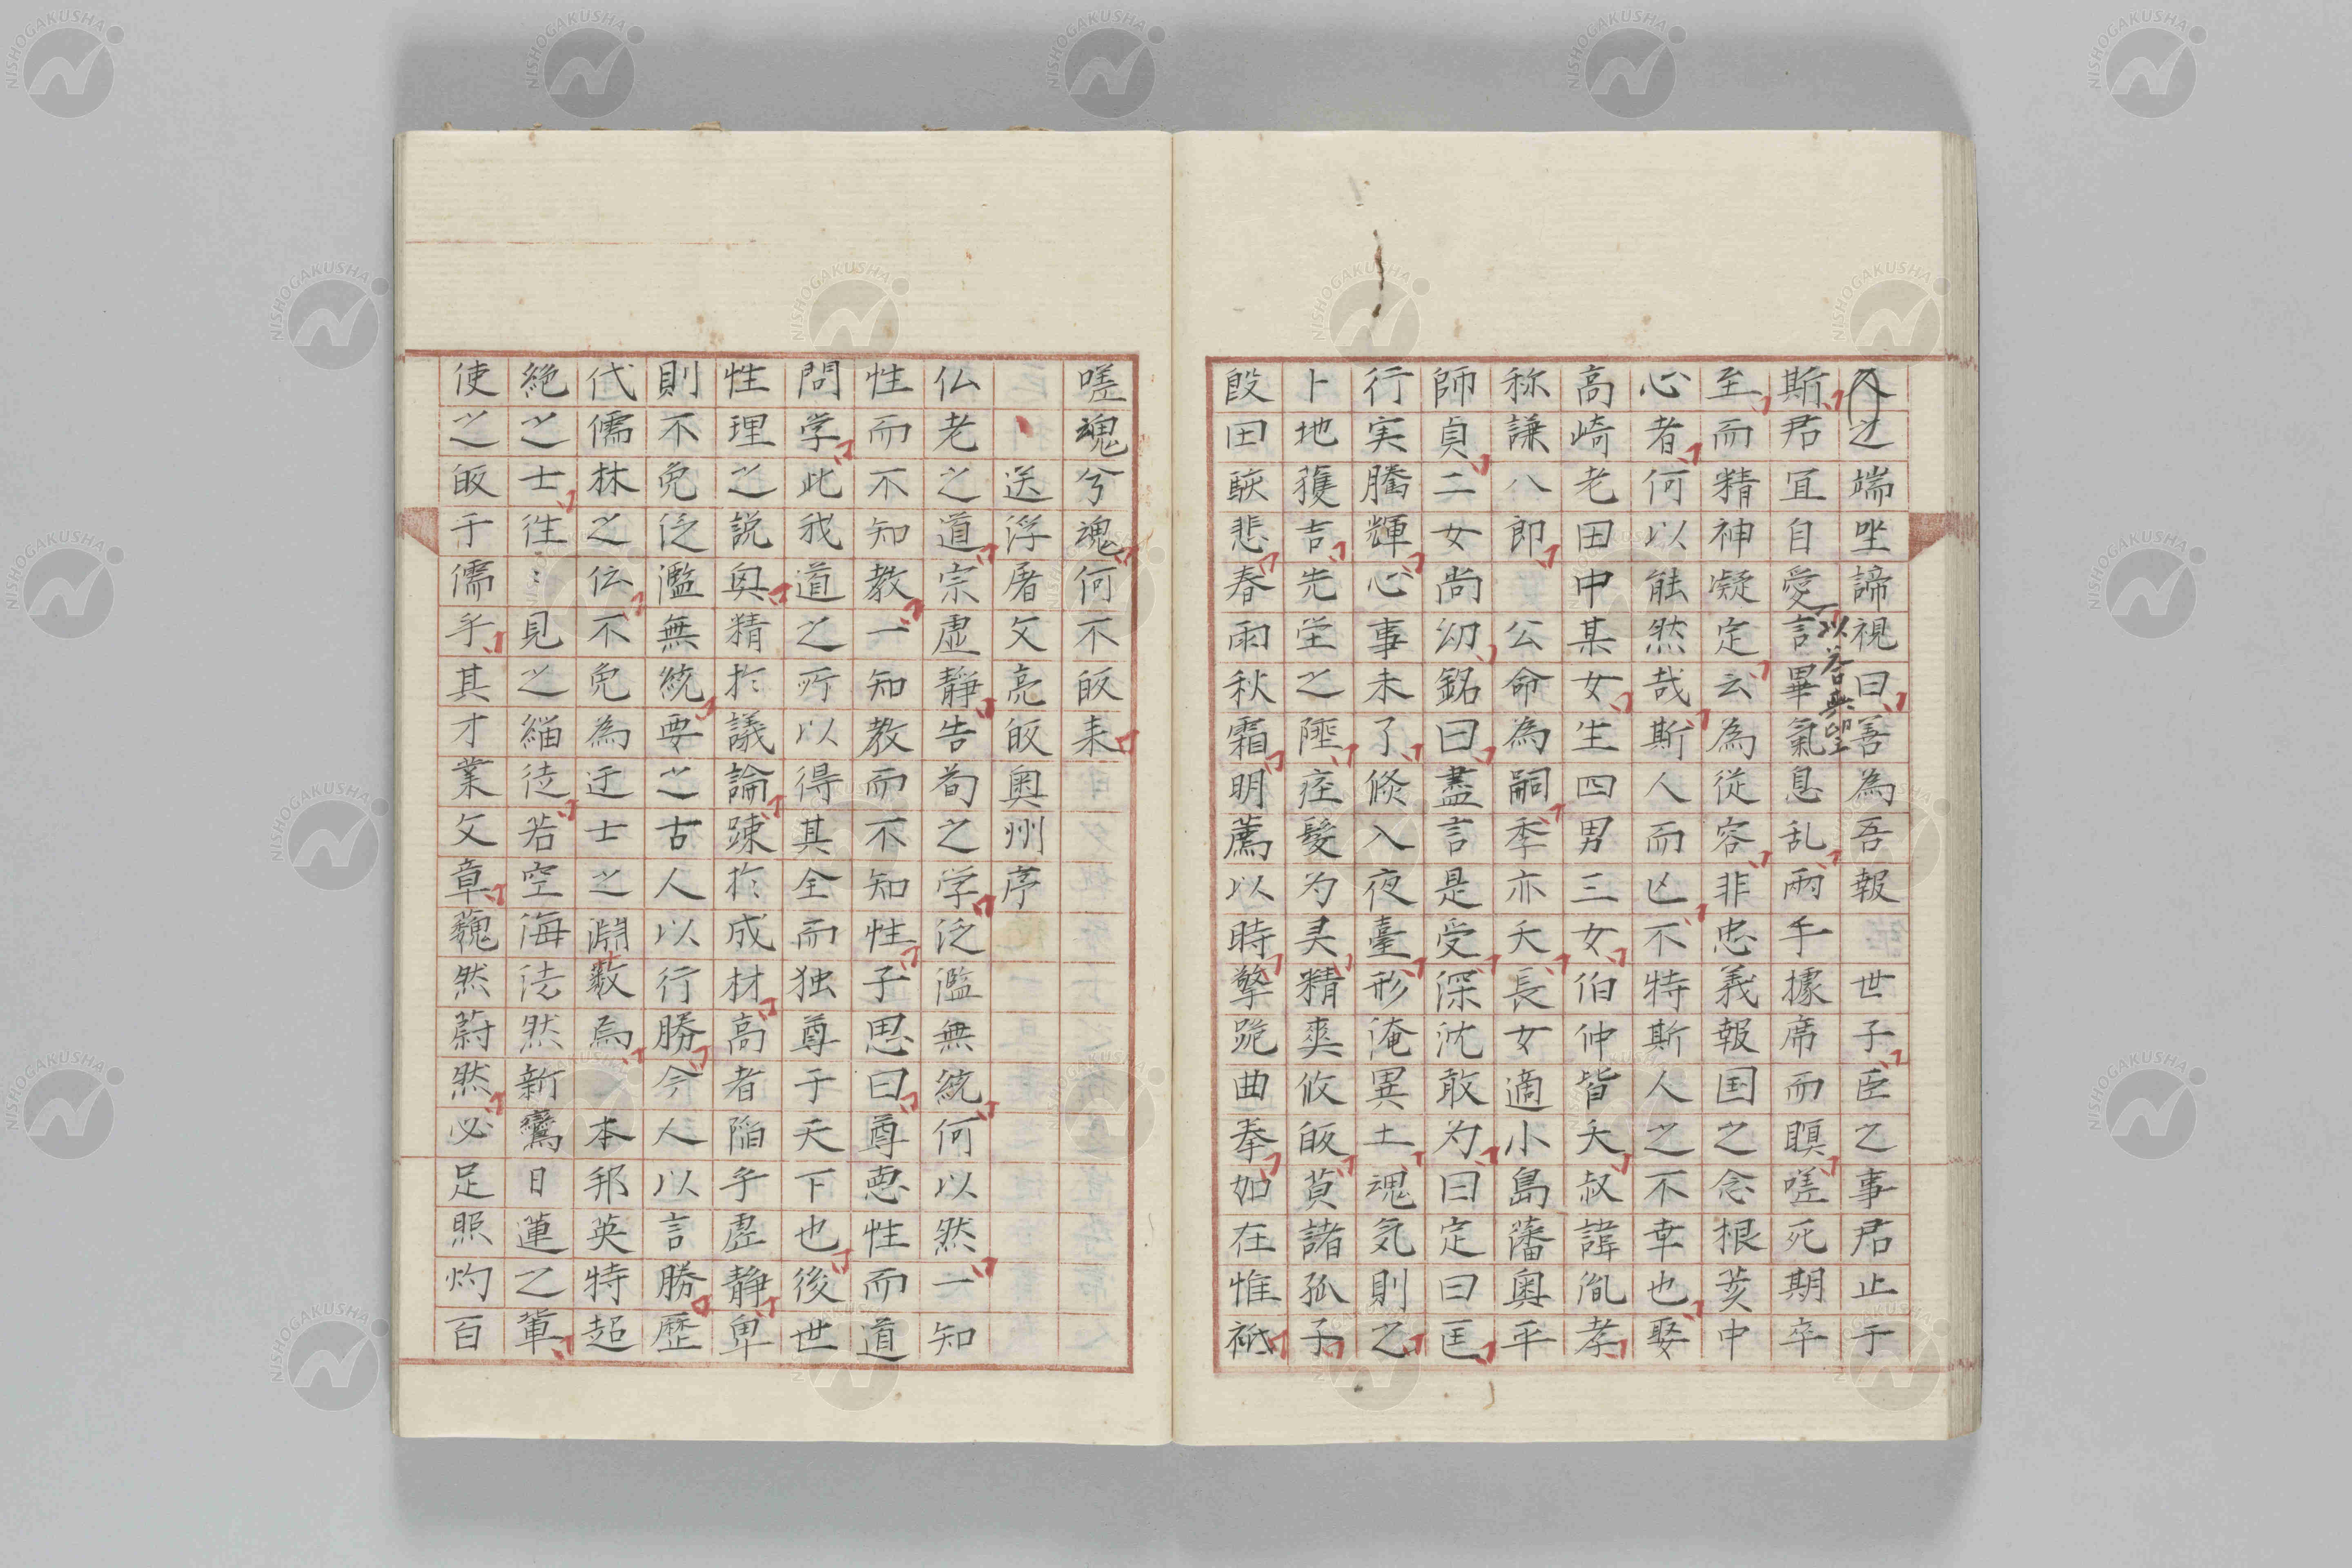 久之端坐諦視曰善為吾報 世子臣之事君止于
斯君宜自愛言畢氣息乱兩手據席而瞑嗟死期卒
以答無望
至而精神凝定云為従容非忠義報国之念根荄中
心者何以能然哉斯人而亾不特斯人之不幸也娶
高崎老田中某女生四男三女伯仲皆夭叔諱胤孝
称謙八郎 公命為嗣季亦夭長女適小島藩奥平
師貞二女尚幼銘曰盡言是受深沈敢为曰定曰匡
行実騰輝心事未了倏入夜臺形淹異土魂気則之
卜地獲吉先塋之陲痊髮为灵精爽攸皈莫諸孤子
殷田歟悲春雨秋霜明薦以時擎跪曲拳如在惟祗
嗟魂兮魂何不皈来
送浮屠文亮皈奥州序
仏老之道宗虚静告荀之学泛濫無統何以然一知
性而不知教一知教而不知性子思曰尊悳性而道
問学此我道之所以得其全而独尊于天下也後世
性理之説奥精於議論踈於成材高者陥乎虚静卑
則不免泛濫無統要之古人以行勝今人以言勝歴
代儒林之伝不免為迂士之淵藪焉 本邦英特超
絶之士往〻見之緇徒若空海法然新鸞日蓮之軰
使之皈于儒乎其才業文章巍然蔚然必足照灼百